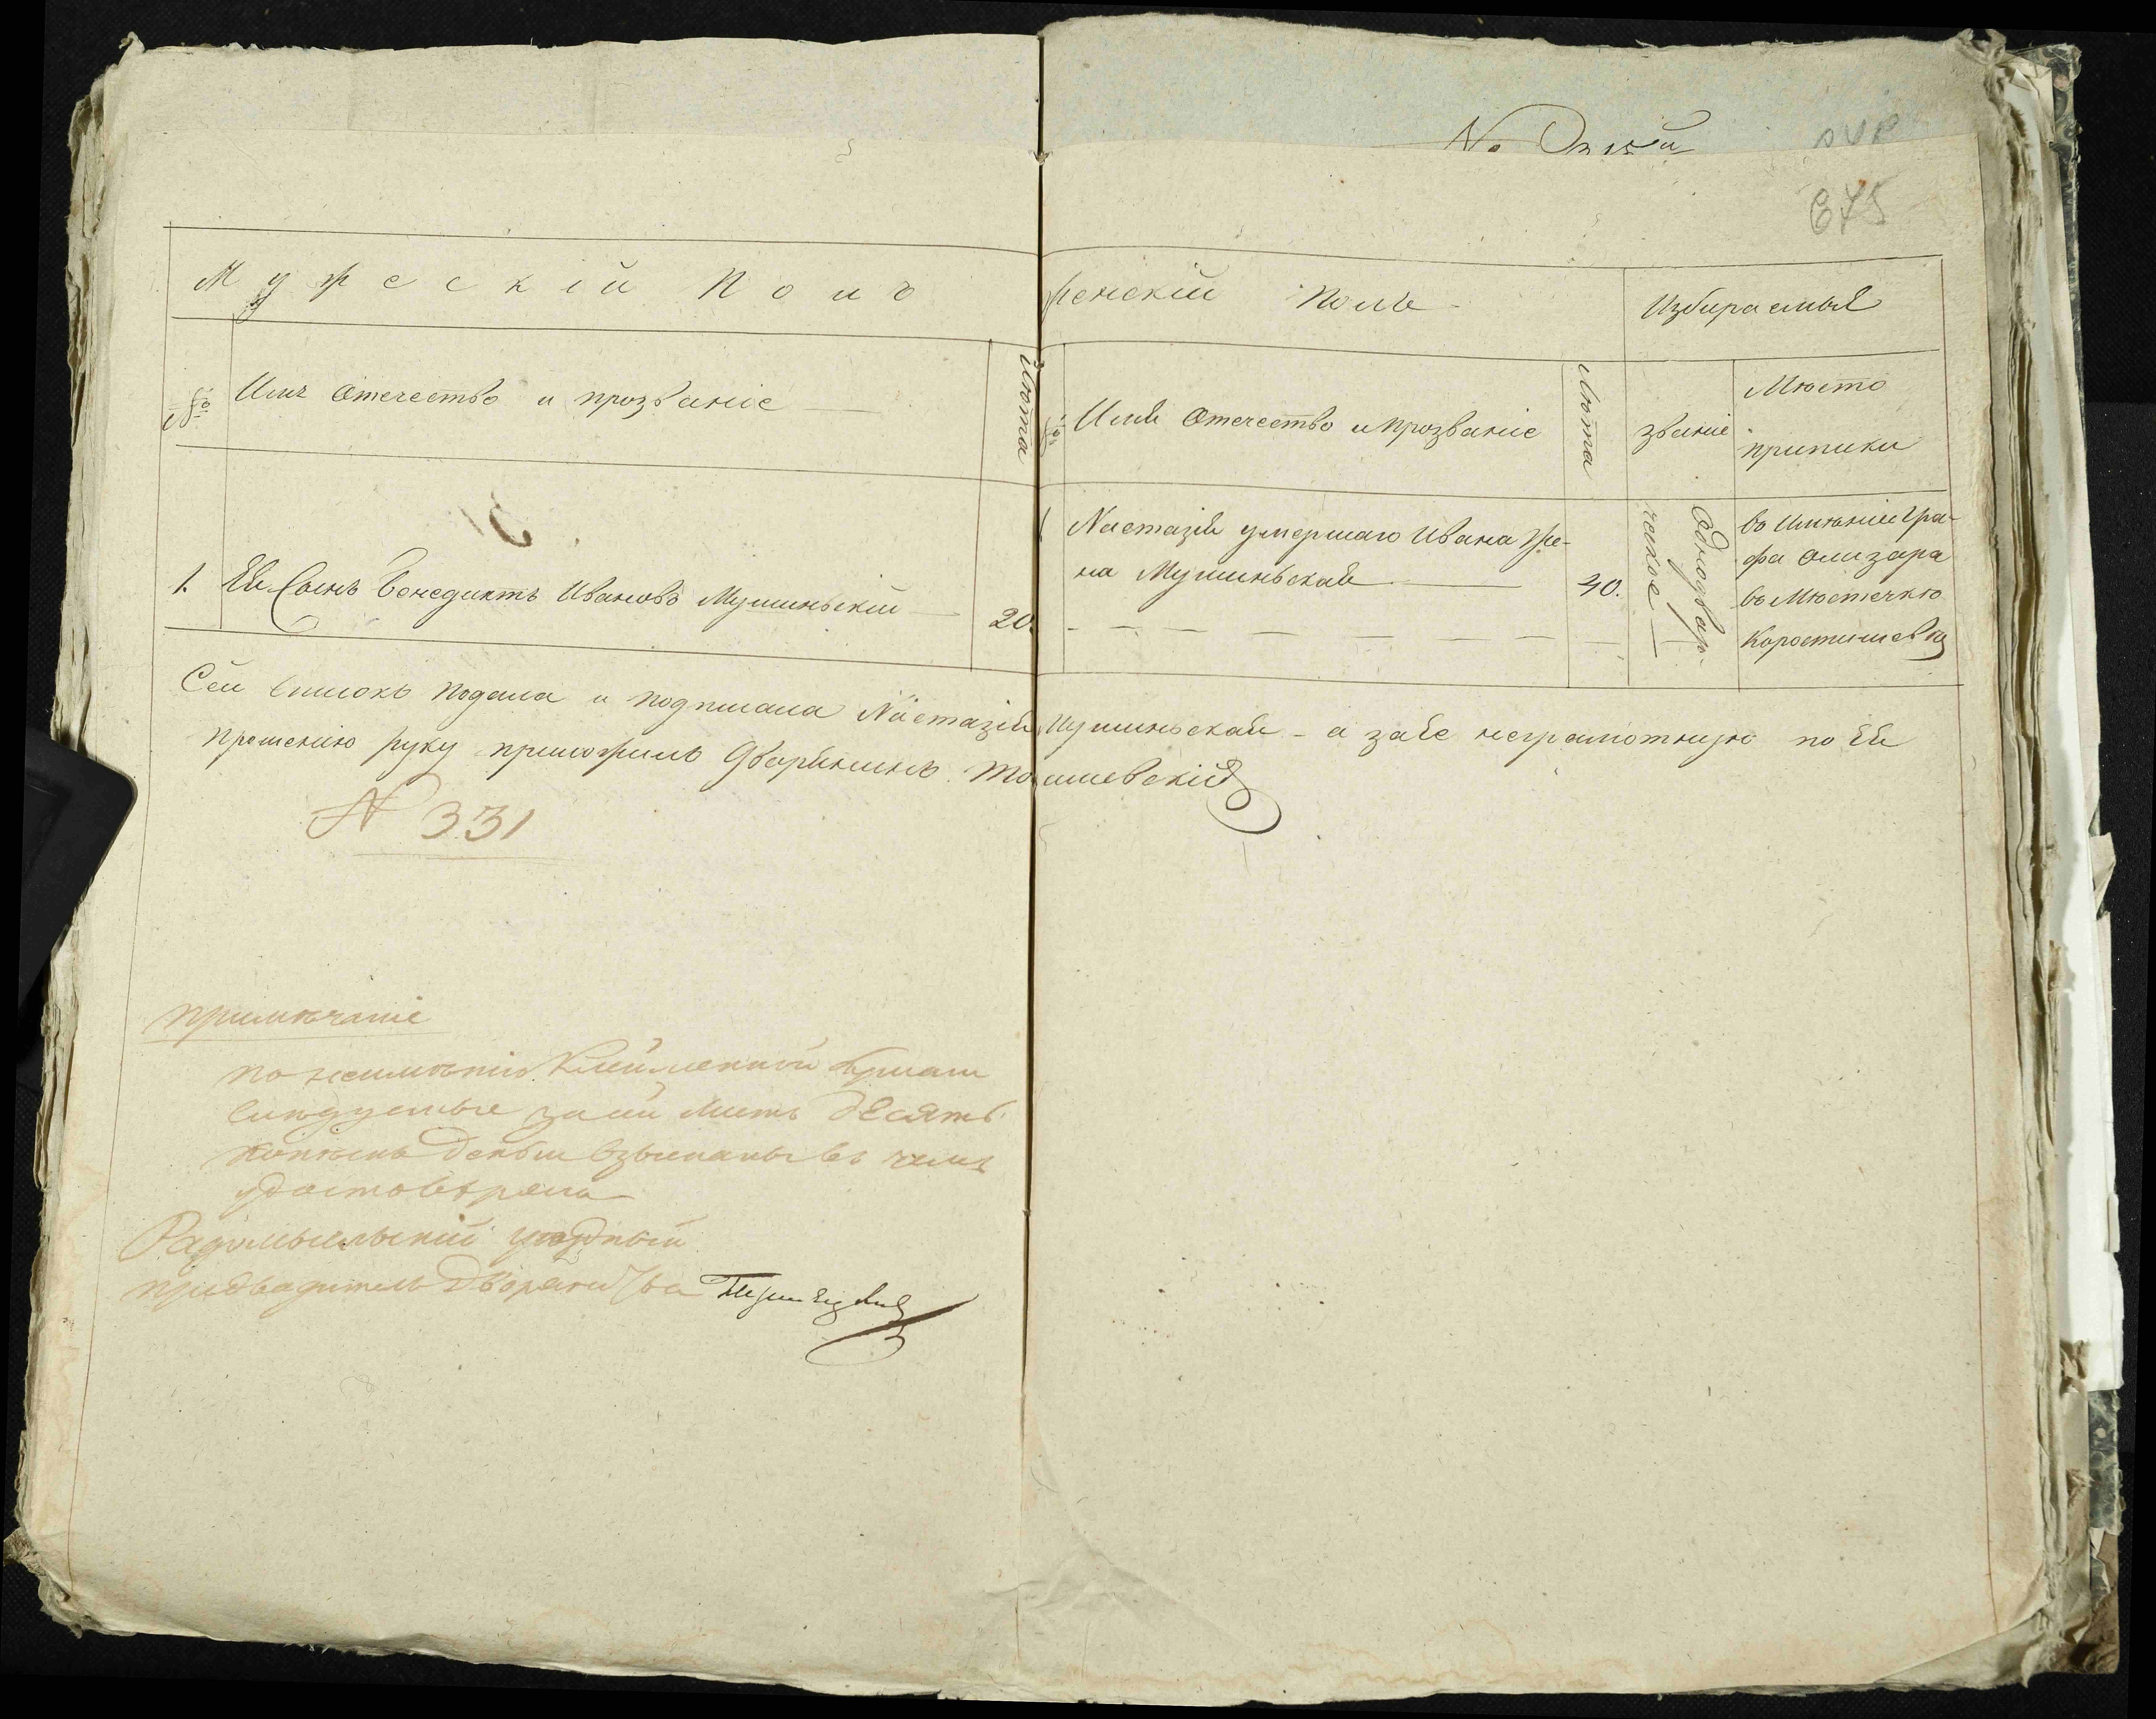 675
Мужескій Полъ
Женскій Полъ
Избираемыя
№
Имя Отечество и прозваніе
Лѣта
№
Имя Отечество и прозваніе
Лѣта
званіе
Мѣсто
приписки
1. Ея Сынъ Бенедиктъ Ивановъ Мушиньскій
20.
1
Настазія умершаго Ивана Же-
на Мушиньская
40.
Однодвор-
ческое
въ Имѣніе Гра-
фа Олизара
въ Мѣстечкѣ
Коростишевѣ
Сей Списокъ подала и подписала Настазія Мушиньская - а за Ее неграмотную по Ея
прошенію руку приложилъ Дворянинъ
№ 331
Примѣчаніе
по неимѣнію Клейменной бумаги
слѣдуемые за сей листъ десять
копѣекъ денги взысканы въ чемъ
удостовѣряю
Радомысльскій уѣздный
предводитель Дворянства